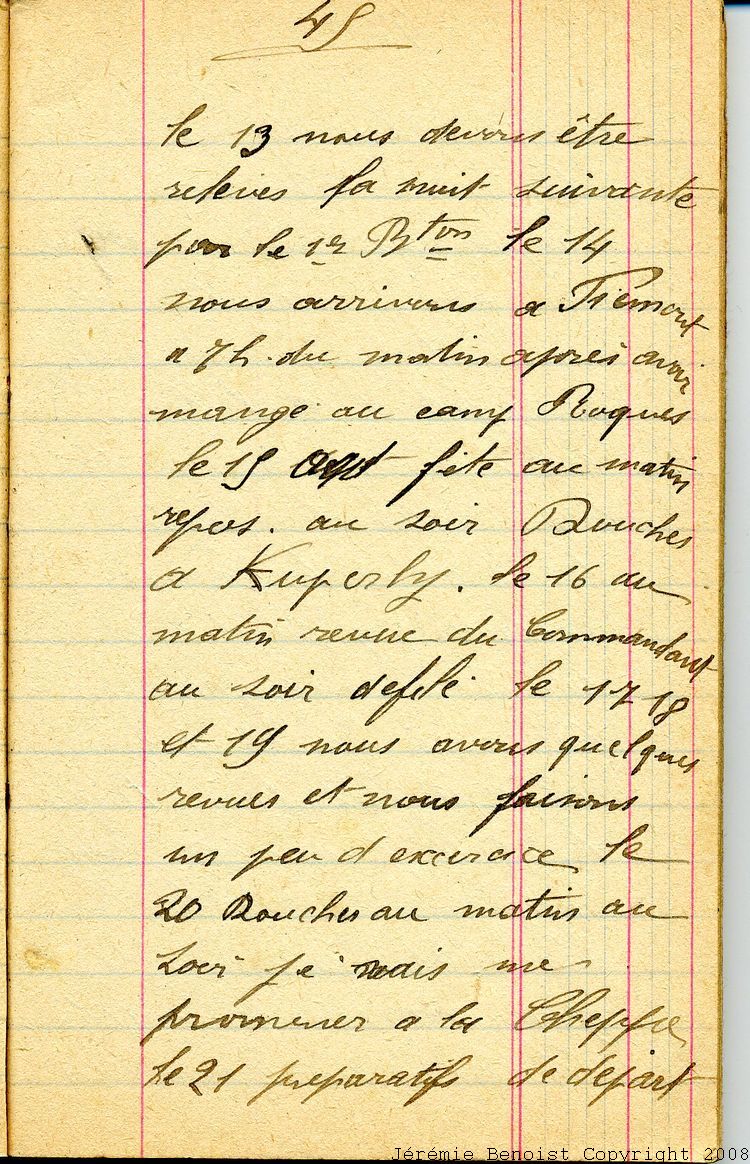 45
le 13 nous devons être
relevés la nuit suivante
par le 1er Bton le 14
nous arrivons a Piémont
a 7h. du matin après avoir
mangé au camp Roques
le 15 aout fête au matin
repos. au soir Douches
a Kuperly. le 16 au
matin revue du Commandant
au soir defilé le 17 18
et 19 nous avons quelques
revues et nous faisons
un peu d exercice le
20 Douches au matin au
soir je vais me
promener a la Cheppe
le 21 preparatifs de départ
Jérémie Benoist Copyright 2008